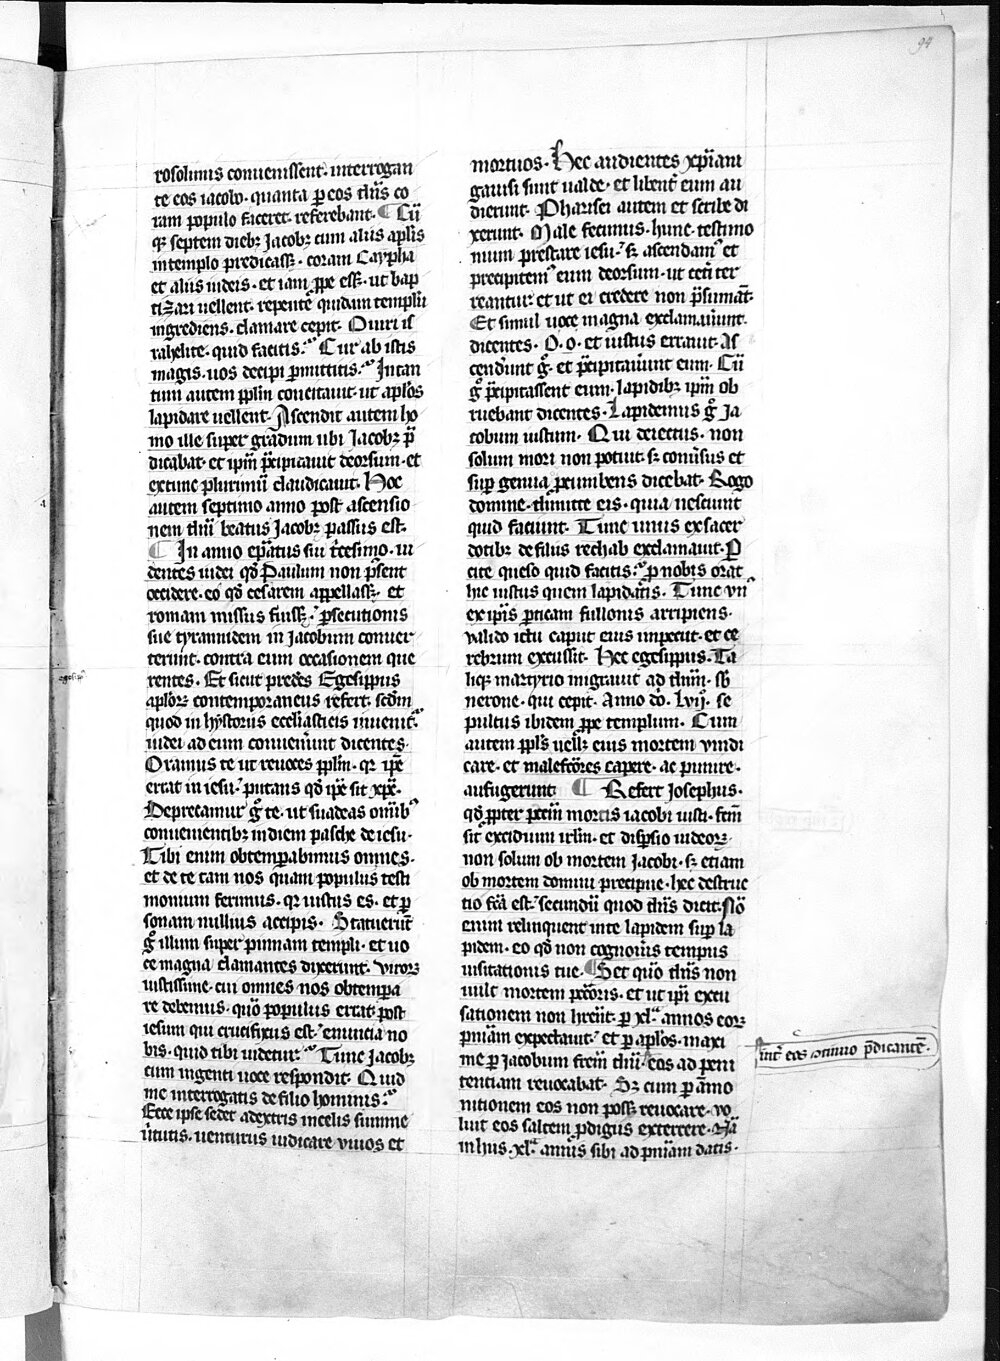 94
rosolimis conuenissent· interrogan
te eos iacobo· quanta ꝑ eos dn̄s co
ram populo faceret· referebant· ¶ Cū
qꝫ septem diebꝫ Jacobꝫ cum aliis apl̄is
in templo predicassꝫ· coram Caypha
et aliis iudeis· et iam ꝓpe essꝫ· ut bap
tizari uellent· repente quidam templū
ingrediens· clamare cepit· O uiri is
rahelite· quid facitis· Cur ab istis
magis· uos decipi ꝑmittitis· In tan
tum autem ppl̄m concitauit· ut apl̄os
lapidare uellent· Ascendit autem ho
mo ille super gradum ubi Jacobꝫ p̄
dicabat· et ip̄m p̄cipitauit deorsum· et
extunc plurimū claudicauit· Hoc
autem septimo anno post ascensio
nem dn̄i beatus Jacobꝫ passus est·
¶ In anno ep̄atus sui t̄cesimo· ui
dentes iudei qd̄ Paulum non p̄sent
occidere· eo qd̄ cesarem appellassꝫ· et
romam missus fuissꝫ· ꝑsecutionis
sue tyrannidem in Jacobum conuer
terunt· contra eum occasionem que
rentes· Et sicut predcs̄ Egesippus
aplorꝫ contemporaneus refert· sedm̄
quod in hystoriis eccl̄iasticis inuenit᷑·
iudei ad eum conuenerunt dicentes·
Oramus te ut reuoces ppl̄m· qr ip̄e
errat in iesu· putans qd̄ ip̄e sit xp̄c·
Deprecamur g̊ te· ut suadeas om̄ibꝰ
conuenientibꝫ in diem pasche de iesu·
Tibi enim obtemꝑabimus omnes·
et de te tam nos quam populus testi
monium ferimus· qr iustus es· et ꝑ
sonam nullius accipis· Statuerūt
g̊ illum super pinnam templi· et uo
ce magna clamantes dixerunt· Virorꝫ
iustissime· cui omnes nos obtempera
re debemus· quō populus errat post
iesum qui crucifixus est· enuncia no
bis· quid tibi uidetur· Tunc Jacobꝫ
cum ingenti uoce respondit· Quid
me interrogatis de filio hominis·
Ecce ipse sedet a dextris in celis summe
ūtutis· uenturus iudicare viuos et
mortuos· Hec audientes xp̄iani
gauisi sunt ualde· et libent᷑ eum au
dierunt· Pharisei autem et scribe di
xerunt· Male fecimus· hunc testimo
nium prestare iesu· sꝫ ascendam᷒ et
precipitem᷒ eum deorsum· ut cet̄i ter
reantur· et ut ei credere non p̄sumāt·
Et simul uoce magna exclamauunt·
dicentes· O· o· et iustus errauit· As
cendunt g̊· et p̄cipitauunt eum· Cū
g̊ p̄cipitassent eum· lapidibꝫ ip̄m ob
ruebant dicentes· Lapidemus g̊ Ja
cobum iustum· Qui deiectus· non
solum mori non potuit· sꝫ conūsus et
suꝑ genua ꝓcumbens dicebat· Rogo
domine· dimitte eis· quia nesciunt
quid faciunt· Tunc unus ex sacer
dotibꝫ de filiis rechab exclamauit· P
cite queso quid facitis· ꝓ nobis orat
hic iustus quem lapidatis· Tunc vn᷒
ex ip̄is ꝑticam fullonis arripiens·
valido ictu caput eius impetiit· et ce
rebrum excussit· Hec egesippus· Ta
liqꝫ martyrio migrauit ad dn̄m· sb̄
nerone· qui cepit· Anno do· Lvij· se
pultus ibidem ꝓpe templum· Cum
autem ppl̄s uellꝫ eius mortem vindi
care· et malefc̄ores capere· ac punire·
aufugerunt· ¶ Refert Josephus·
qd̄ ꝓpter pcc̄m mortis iacobi iusti· fcm̄
sit excidium irl̄m· et disꝑsio iudeorꝫ·
non solum ob mortem Jacobi· sꝫ etiam
ob mortem domini precipue· hec destruc
tio fc̄a est· secundū quod dn̄s dicit· Nō
enim relinquent in te lapidem suꝑ la
pidem· eo qd̄ non cognouis tempus
uisitationis tue· ¶ Set quō dn̄s non
uult mortem pc̄coris· et ut ip̄i excu
sationem non hr̄ent· ꝑ xl· annos eorꝫ
pn̄iam expectauit· et ꝑ apl̄os· maxi
me ꝑ Jacobum fr̄em dn̄i· eos ad peni
tentiam reuocabat· Sꝫ cum ꝑ āmo
nitionem eos non possꝫ reuocare· vo
luit eos saltem ꝓdigiis exterrere· Nā
in hiis· xl· annis sibi ad pn̄iam datis·
int̄ eos continuo p̄dicantē·